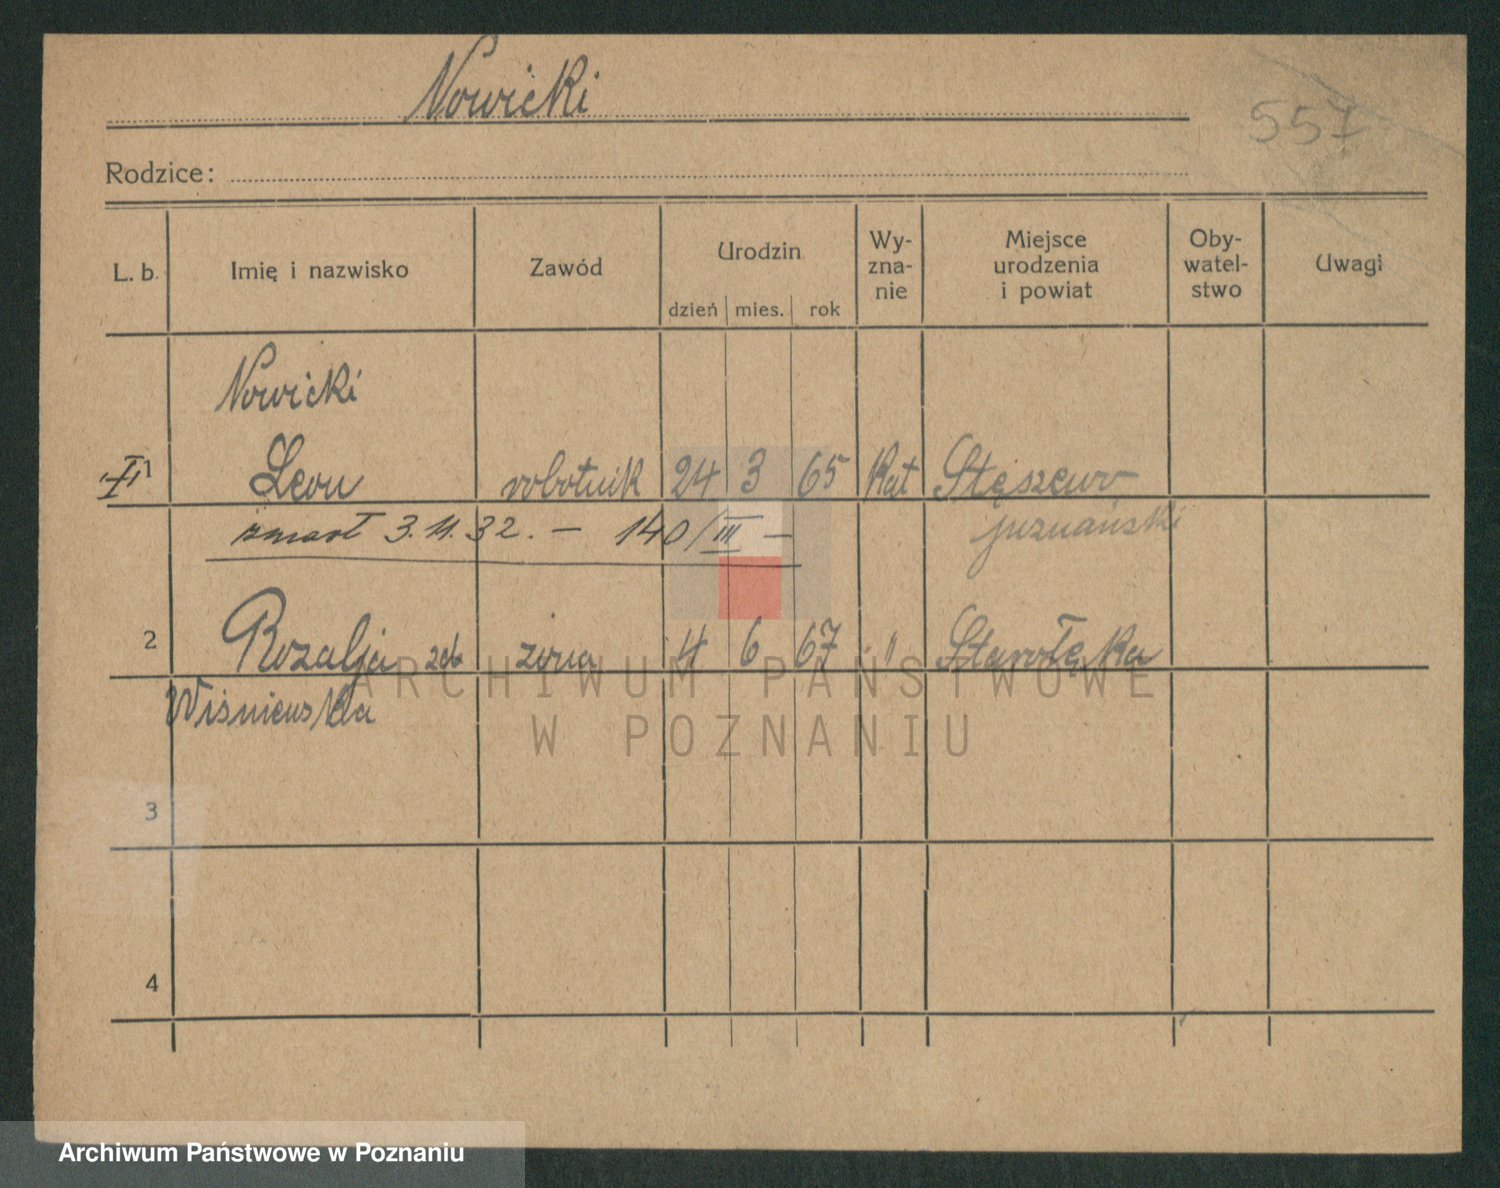 Nowicki
557
Rodzice:
L. b. Imię i nazwisko Zawód Urodzin dzień mies. rok Wy-zna-nie Miejsce urodzenia i powiat Oby-watel-stwo Uwagi
Nowicki
1 Leon robotnik 24 3 65 Kat Stęszewo
zmarł 3.11.32. — 140/III — poznański
2 Rozalja zd. żona 4 6 67 " Starołęka
Wiśniewska
3
4
ARCHIWUM PAŃSTWOWE
W POZNANIU
Archiwum Państwowe w Poznaniu